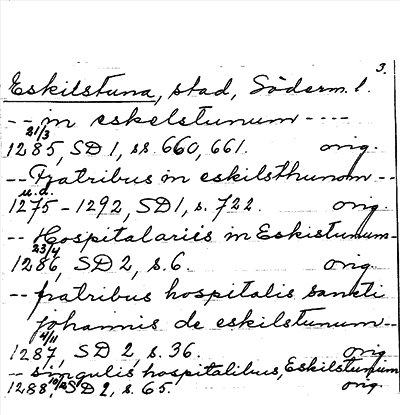 3.
Eskilstuna, stad, Söderm. l.
-- in eskelstunum ----
21/3
1285, SD 1, ss. 660, 661. orig.
-- Fratribus in eskilsthunom --
u.d.
1275-1292, SD1, s. 722. orig.
-- Hospitalariis in Eskistunum-
23/4
1286, SD 2, s. 6. orig.
-- fratribus hospitalis sancti
johannis de eskilstunum--
4/11
1287, SD 2, s. 36. orig
-- singulis hospitalibus, Eskilstunium
1288, SD 2, s. 65. orig.